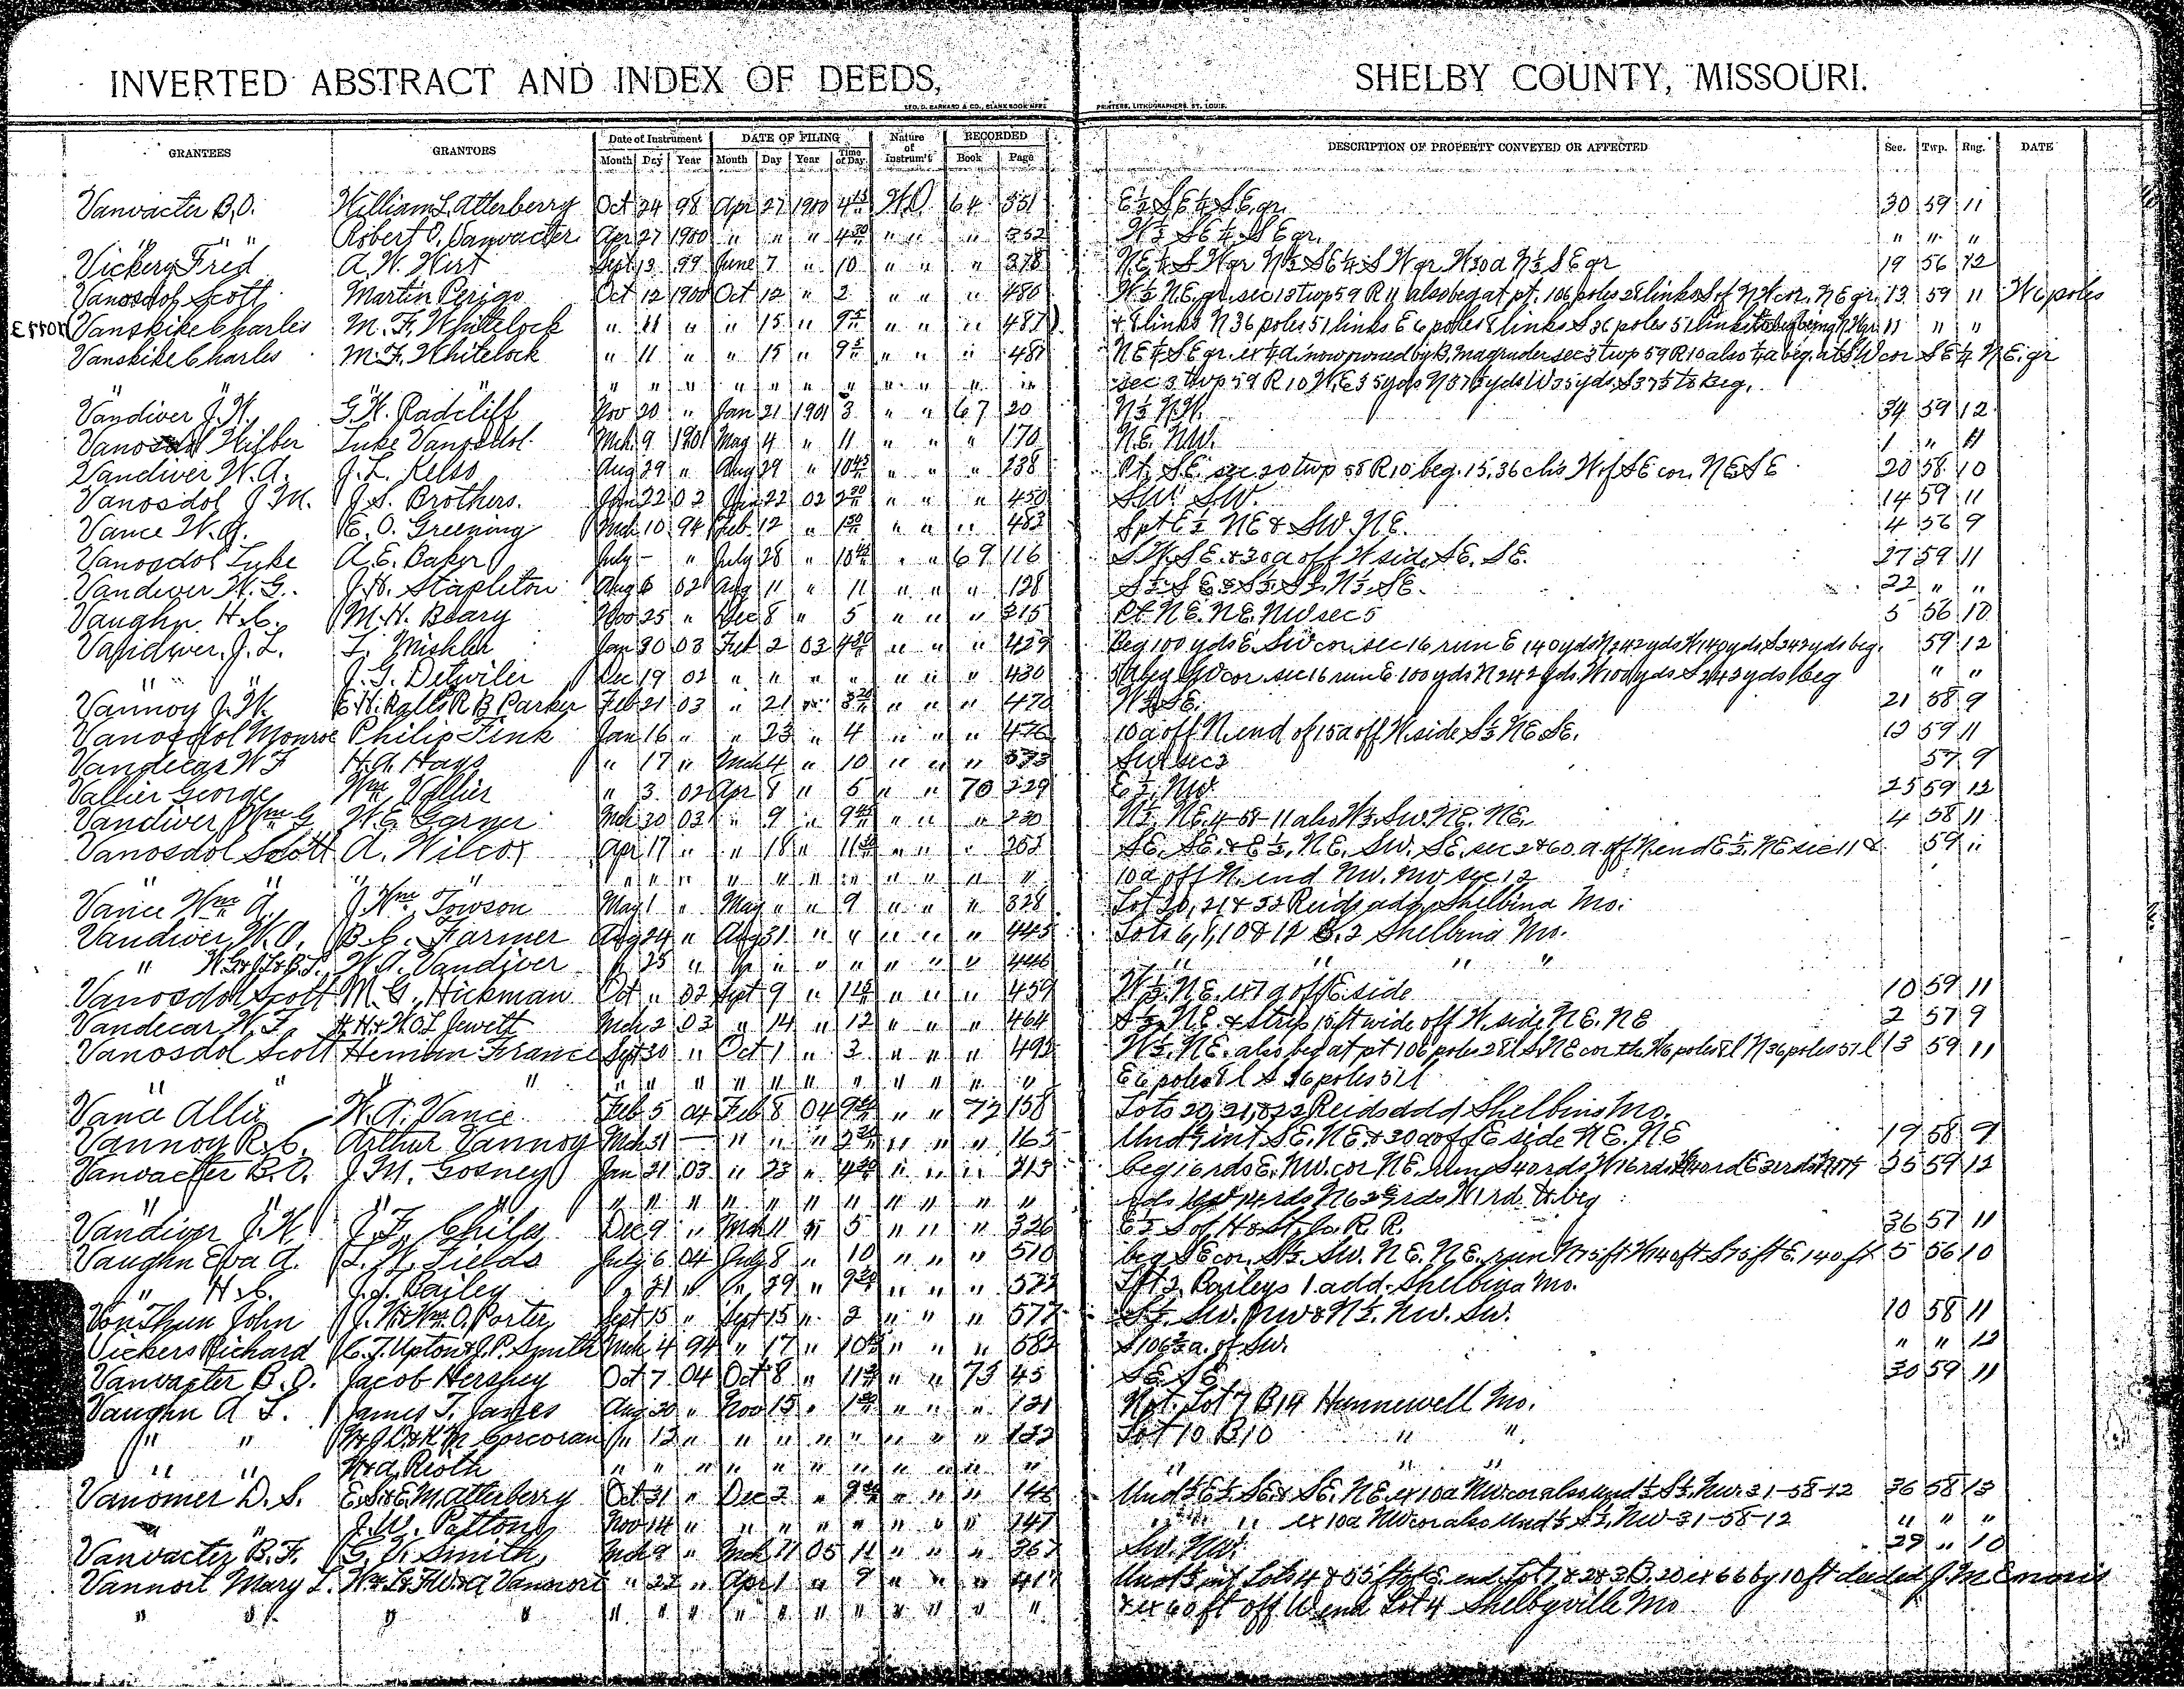 INVERTED ABSTRACT AND INDEX OF DEEDS, SHELBY COUNTY, MISSOURI.
GEO. D. BARNARD & CO., BLANK BOOK MFRS PRINTERS, LITHOGRAPHERS, ST. LOUIS.
GRANTEES GRANTORS Date of Instrument DATE OF FILING Nature of Instrum't RECORDED DESCRIPTION OF PROPERTY CONVEYED OR AFFECTED Sec. Twp. Rng. DATE
Month Day Year Month Day Year Time of Day Book Page
Vanvacter B.O. William L. Atterberry Oct 24 98 Apr 27 1900 4 15 W.D 64 331 E½ SE¼ SE gr. 30 59 11
" " " Robert O. Vanvacter Apr 27 1900 " " " 4 20 " " " 332 W½ SE¼ SE gr. " " "
Vickery Fred A.W. Hirt Sept 13 99 June 7 " 10 " " " 378 NE¼ SW gr N½ SE¼ SW gr W30a N½ SE gr 19 56 12
Vanosdol Scott Martin Perigo Oct 12 1900 Oct 12 " 2 " " " 486 W½ NE. gr. sec 13 twp 59 R 11 also beg at pt. 106 poles 28 links S of NW cor. NE gr. 13 59 11 W6 poles
Error Vanskike Charles M. F. Whitelock " 11 " " 15 " 9 " " " 487 & 8 links N 36 poles 51 links E 6 poles 8 links S 36 poles 51 links to beg being NW gr 11 " "
Vanskike Charles M. F. Whitelock " 11 " " 15 " 9 " " " 487 NE¼ SE gr. ex ¼ a. now owned by B. Magruder sec 3 twp 59 R 10 also ¼ a beg. at SW cor SE¼ NE. gr
" " " " " " " " " " " " sec 3 twp 59 R 10 W. E 35 yds N 37½ yds W 35 yds. S 37½ to beg.
Vandiver J.W. G.W. Radcliff Nov 20 " Jan 21 1901 3 " " 67 20 N½ NW. 34 59 12
Vanosdol Wilber Luke Vanosdol Mch 9 1901 May 4 " 11 " " " 170 NE. NW. 1 " 11
Vandiver W.A. J.L. Kelso Aug 29 " Aug 29 " 10 45 " " " 238 Pt. SE. sec 20 twp 58 R 10 beg. 15.36 chs W of SE cor. NE SE 20 58 10
Vanosdol J M. J.S. Brothers. Jan 22 02 Jan 22 02 2 30 " " " 450 SW. SW. 14 59 11
Vance W.A. E.O. Greening Mch 10 94 Feb. 12 " 1 30 " " " 483 S pt E½ NE & SW. NE. 4 56 9
Vanosdol Luke A.E. Baker July - " July 28 " 10 " " 69 116 SW. SE. & 30a off W side SE. SE. 27 59 11
Vandiver W.G. J.H. Stapleton Aug 6 02 Aug 11 " 11 " " " 128 S½ SE & S½ S½ N½ SE. 22 " "
Vaughn H.C. M.H. Beary Nov 25 " Dec 8 " 5 " " " 315 Pt NE. NE. NW sec 5 5 56 10
Vandiver J.L. L. Mishler Jan 30 03 Feb 2 03 4 30 " " " 429 Beg 100 yds E. SW cor. sec 16 run E 140 yds N 242 yds W 140 yds S 242 yds beg. 59 12
" " J.G. Detwiler Dec 19 02 " " " " " " " 430 beg SW cor sec 16 run E 100 yds N 242 yds W 100 yds S 242 yds beg " "
Vannoy J.W. E.H. Ralls R B Parker Feb 21 03 " 21 " 3 " " " 470 W½ SE. 21 58 9
Vanosdol Monroe Philip Fink Jan 16 " " 23 " 4 " " " 476 10a off N. end of 15a off W. side S½ NE SE. 12 59 11
Vandecar W F H.A. Hays " 17 " Mch 4 " 10 " " " 573 SW sec 2 57 9
Vallier George Wm. Vallier " 3 02 Apr 8 " 5 " " 70 229 E½ NW 25 59 12
Vandiver Wm G W.E. Garner Mch 30 03 " 9 " 9 45 " " " 230 N½ NE. 4-58-11 also W½ SW. NE. NE. 4 58 11
Vanosdol Scott A. Wilcox Apr 17 " " 18 " 11 " " " 252 SE. SE. & E½ NE. SW. SE. sec 2 & 60 a off N end E½ NE sec 11 & 59 11
" " " " " " " " " " " 10a off N. end NW. NW sec 12
Vance Wm A. J. Wm Towson May 1 " May " " 9 " " " 328 Lot 20, 21 & 22 Reids add Shelbina Mo.
Vandiver W.A. B.C. Farmer Aug 24 " Aug 31 " " " " " 445 Lots 6, 7, 10 & 11 B. 2 Shelbina Mo.
" W.G. & J.L. & B.L. W.A. Vandiver " 25 " " " " " " " " 446 " " " "
Vanosdol Scott M.G. Hickman Oct " 02 Sept 9 " 1 " " " 459 W½ NE. ex 7a off E side 10 59 11
Vandecar W.F. H.H. & W.O.L. Jewett Mch 2 03 " 14 " 12 " " " 464 S½ NE. & strip 15 ft wide off W. side NE. NE 2 57 9
Vanosdol Scott Heman France Sept 30 " Oct 1 " 3 " " " 492 W½ NE. also beg at pt 106 poles 28 l S NE cor th W6 poles 8 l N 36 poles 51 l 13 59 11
" " " " " " " " " " " E 6 poles 8 l S 36 poles 51 l
Vance Allie W.A. Vance Feb 5 04 Feb 8 04 9 " " 72 158 Lots 20, 21, & 22 Reids add Shelbina Mo.
Vannoy R.C. Arthur Vannoy Mch 31 — " " " 2 30 " " " 165 Und ½ int SE. NE. & 30a off E side NE. NE 19 58 9
Vanvacter B.O. J.M. Gosney Jan 21 03 " 23 " 4 30 " " " 213 beg 16 rds E. NW. cor NE. run S 40 rds W 16 rds 25 59 12
" " " " " " " " " " 14 rds N 62 rds W 1 rd. to beg
Vandiver J.W. J.F. Chiles Dec 9 " Mch 11 " 5 " " " 326 E½ S of H & St. Jo. R.R. 36 57 11
Vaughn Eva A. L.W. Fields July 6 04 July 8 " 10 " " " 510 beg SE cor. S½ SW. NE. NE. run N 75 ft W 140 ft S 75 ft E. 140 ft 5 56 10
" H.C. J.J. Bailey " 21 " " 29 " 9 " " " 522 Lot 2, Baileys 1 add. Shelbina Mo.
Von Thun John J.W. & Wm. O. Porter Sept 15 " Sept 15 " 2 " " " 577 S½ SW. NW & N½ NW. SW. 10 58 11
Vickers Richard C.T. Upton & J.P. Smith Mch 4 94 " 17 " 10 " " " 582 S 106⅔ a. of SW. " " 12
Vanvacter B.O. Jacob Hershey Oct 7 04 Oct 8 " 11 " " 73 45 SE. SE 30 59 11
Vaughn A L. James T. Janes Aug 30 " Nov 15 " 1 " " " 121 N pt. Lot 7 B 14 Hunnewell Mo.
" " Corcoran " 12 " " " " " " " " 122 Lot 10 B 10 " "
" " W & A. Rioth " " " " " " " " " " " " "
Vanomer D.S. E.S. & E.M. Atterberry Oct 31 " Dec 2 " 9 " " " 146 Und ½ E½ SE. & SE. NE. ex 10a NW cor also und ½ S½ NW. 31-58-12 36 58 13
" " J.W. Patton Nov 14 " " " " " " " " 147 " " " ex 10a NW cor also Und ½ S½ NW 31-58-12 " " "
Vanvacter B.F. G.V. Smith Mch 9 " Mch 21 05 11 " " " 367 SW. NW. 29 " 10
Vannort Mary L. W & L & F.W. & A Vannort " 22 " Apr 1 " 9 " " " 417 Und ⅓ int Lots 4 & 5 5 ft of E. end Lot 7 & 2 & 3 B. 20 ex 66 by 10 ft deeded J.M. Ennis
" " " " " " " " " " " " " " & ex 60 ft off W end Lot 4 Shelbyville Mo